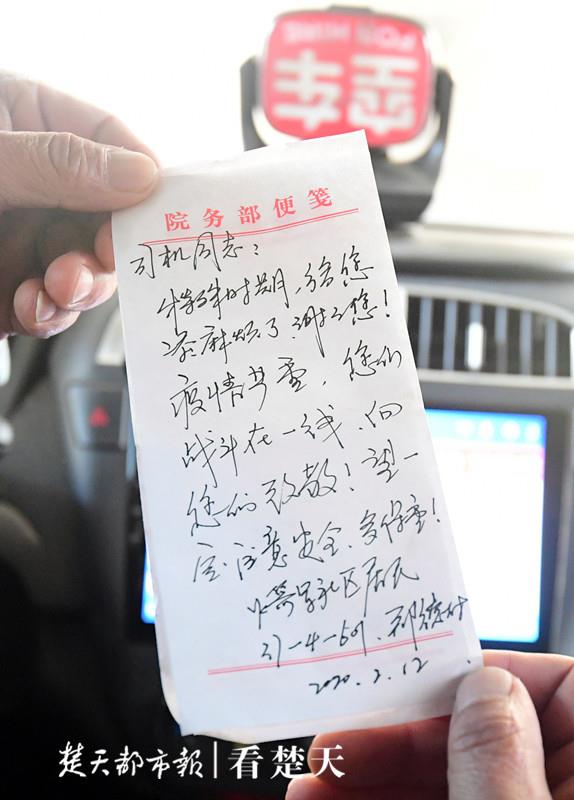 FOR HIRE
空车
院务部便笺
司机同志:
特殊时期,给您
添麻烦了,谢谢您!
疫情严重,您们
战斗在一线,向
您们致敬!望一
定注意安全、多保重!
社区居民
2020.2.12
楚天都市报|看楚天